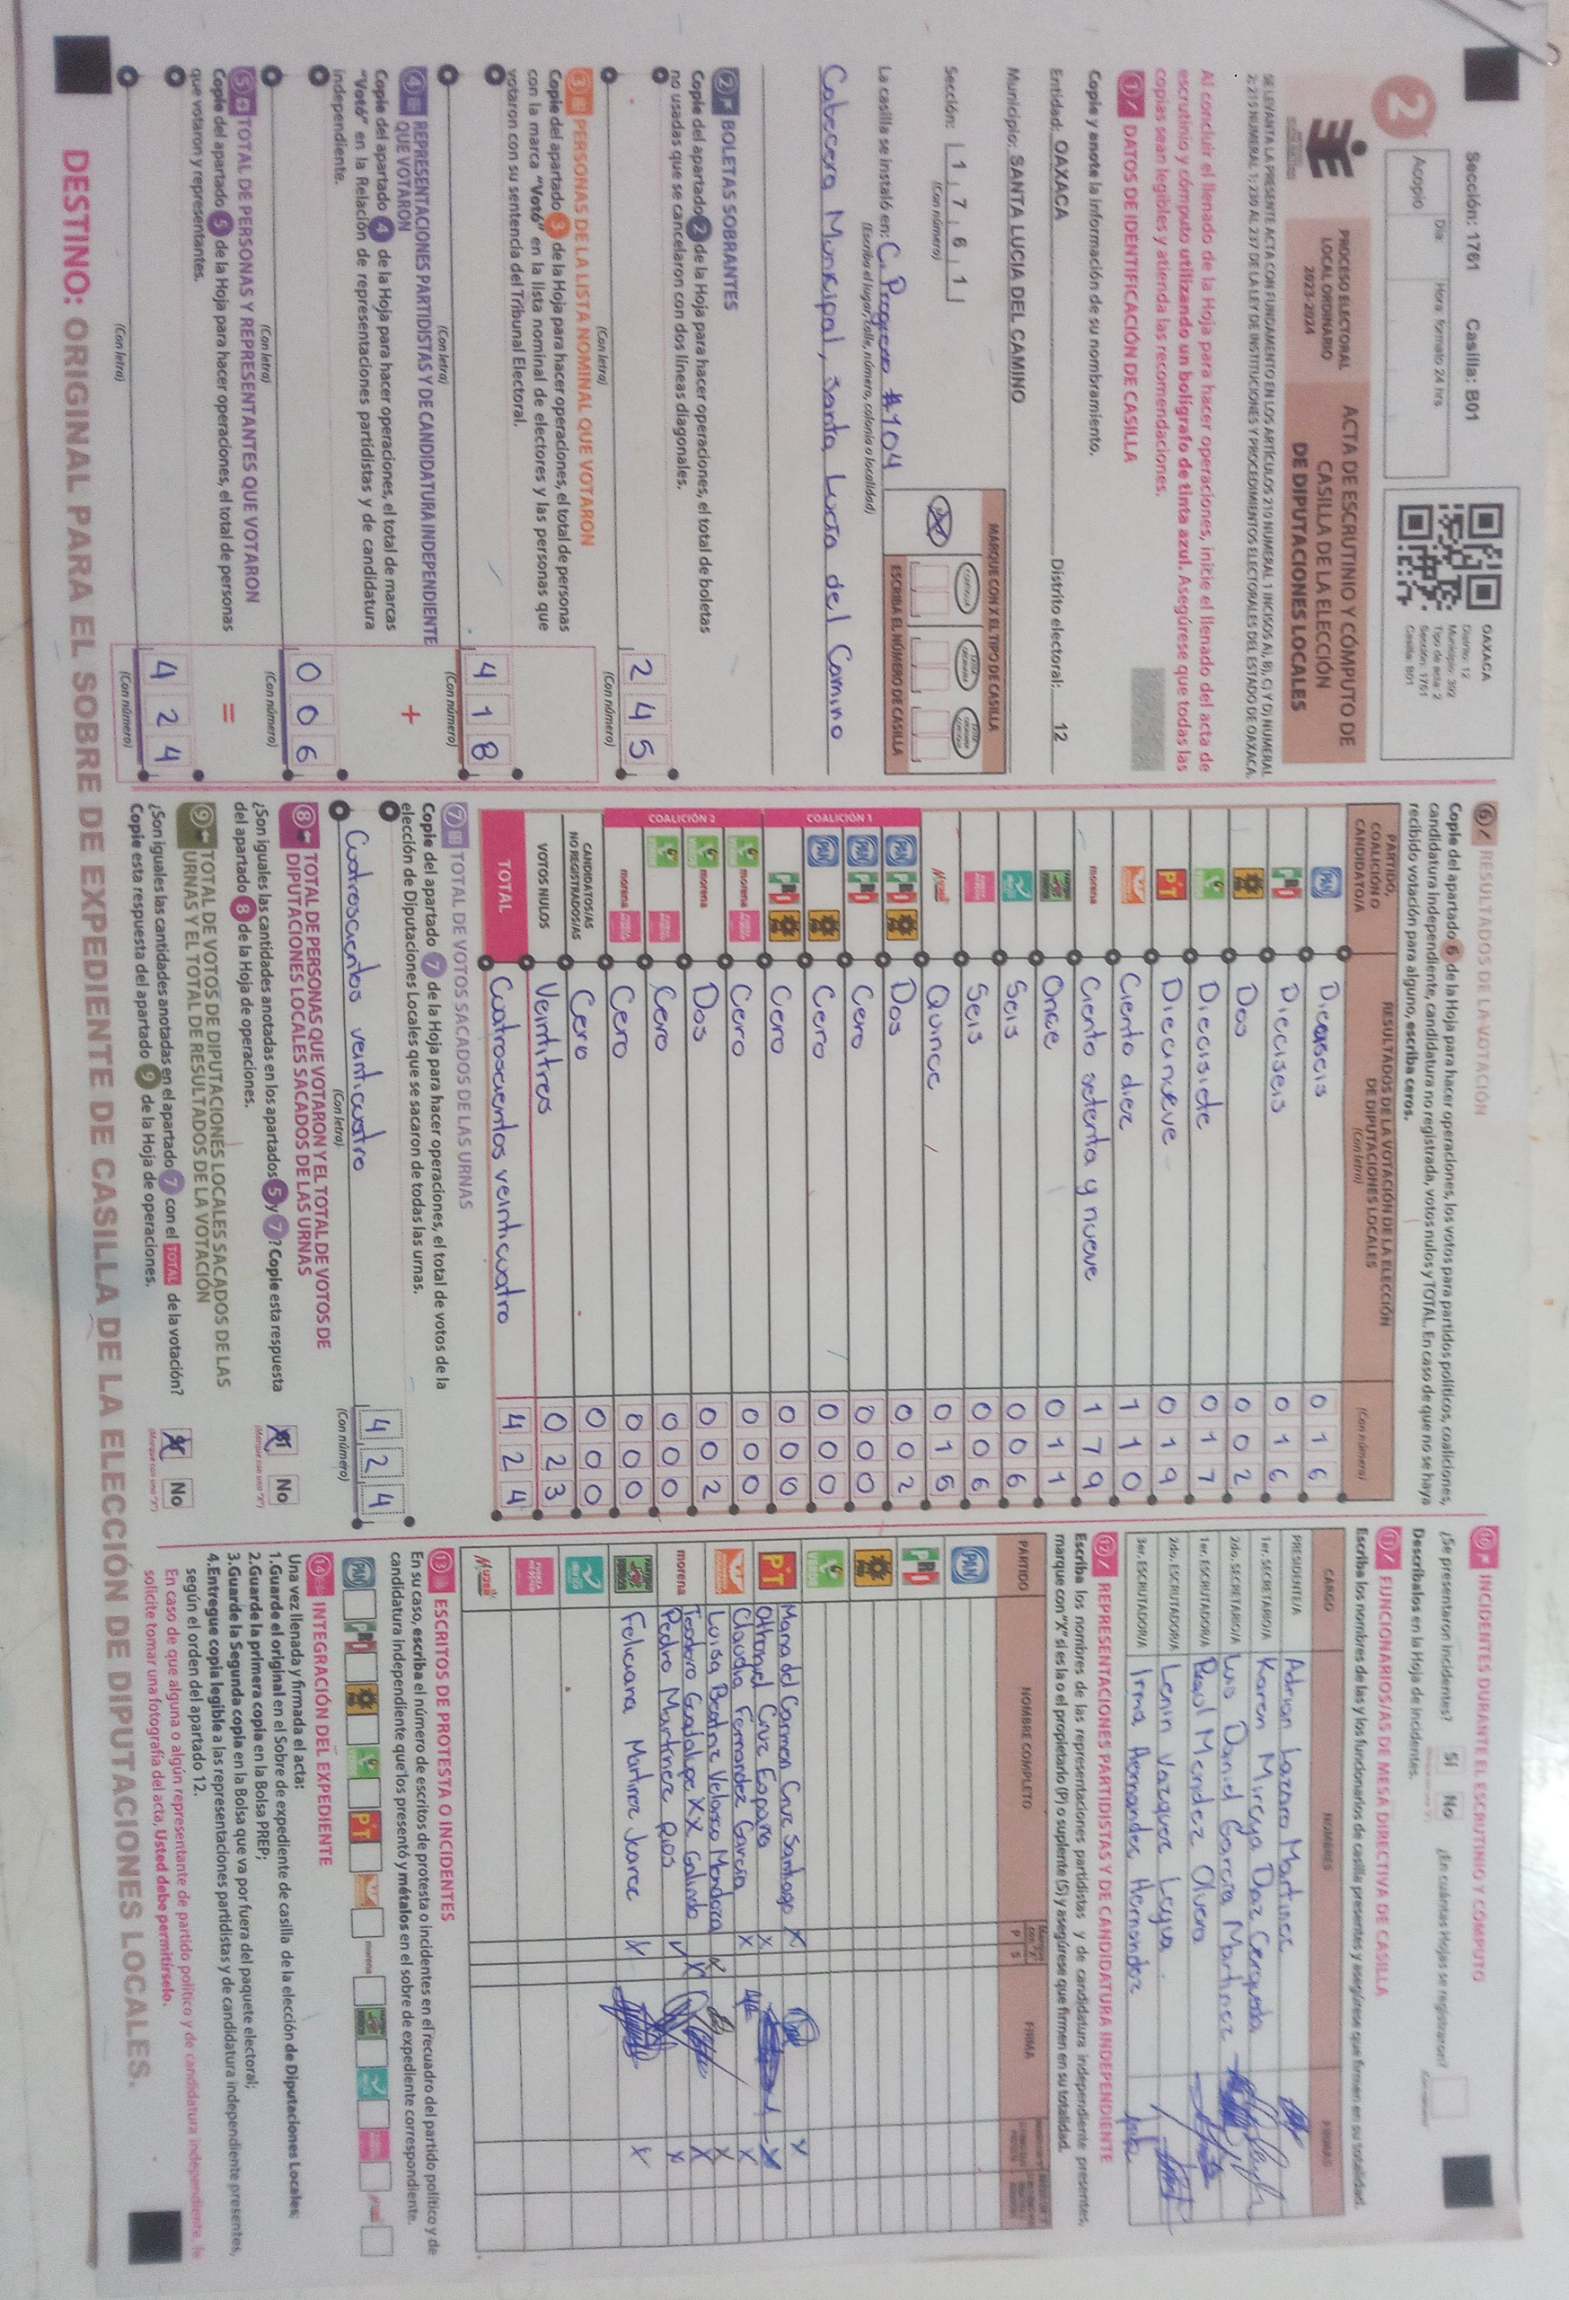 Sección: 1761 Casilla: B01
2
Acopio
Día:
Hora: formato 24 hrs
OAXACA
Distrito: 12
Municipio: 392
Tipo de acta: 2
Sección: 1761
Casilla: B01
PROCESO ELECTORAL
LOCAL ORDINARIO
2023-2024
ACTA DE ESCRUTINIO Y CÓMPUTO DE
CASILLA DE LA ELECCIÓN
DE DIPUTACIONES LOCALES
SE LEVANTA LA PRESENTE ACTA CON FUNDAMENTO EN LOS ARTÍCULOS 210 NUMERAL 1 INCISOS A), B), C) Y D) NUMERAL
2; 215 NUMERAL 1; 230 AL 237 DE LA LEY DE INSTITUCIONES Y PROCEDIMIENTOS ELECTORALES DEL ESTADO DE OAXACA.
Al concluir el llenado de la Hoja para hacer operaciones, inicie el llenado del acta de
escrutinio y cómputo utilizando un bolígrafo de tinta azul. Asegúrese que todas las
copias sean legibles y atienda las recomendaciones.
1 DATOS DE IDENTIFICACIÓN DE CASILLA
Copie y anote la información de su nombramiento.
Entidad: OAXACA Distrito electoral: 12
Municipio: SANTA LUCIA DEL CAMINO
Sección: 1 7 6 1
(Con número)
MARQUE CON X EL TIPO DE CASILLA
ESCRIBA EL NÚMERO DE CASILLA
La casilla se instaló en: C. Progreso #104
(Escriba el lugar, calle, número, colonia o localidad)
Cabecera Municipal, Santa Lucia del Camino
2 BOLETAS SOBRANTES
Copie del apartado 2 de la Hoja para hacer operaciones, el total de boletas
no usadas que se cancelaron con dos líneas diagonales.
2 4 5
(Con letra) (Con número)
3 PERSONAS DE LA LISTA NOMINAL QUE VOTARON
Copie del apartado 3 de la Hoja para hacer operaciones, el total de personas
con la marca "Votó" en la lista nominal de electores y las personas que
votaron con su sentencia del Tribunal Electoral.
4 1 8
(Con letra) (Con número)
4 REPRESENTACIONES PARTIDISTAS Y DE CANDIDATURA INDEPENDIENTE
QUE VOTARON
+
Copie del apartado 4 de la Hoja para hacer operaciones, el total de marcas
"Votó" en la Relación de representaciones partidistas y de candidatura
independiente.
0 0 6
(Con letra) (Con número)
5 TOTAL DE PERSONAS Y REPRESENTANTES QUE VOTARON
=
Copie del apartado 5 de la Hoja para hacer operaciones, el total de personas
que votaron y representantes.
4 2 4
(Con letra) (Con número)
6 RESULTADOS DE LA VOTACIÓN
Copie del apartado 6 de la Hoja para hacer operaciones, los votos para partidos políticos, coaliciones,
candidatura independiente, candidatura no registrada, votos nulos y TOTAL. En caso de que no se haya
recibido votación para alguno, escriba ceros.
PARTIDO,
COALICIÓN O
CANDIDATO/A
RESULTADOS DE LA VOTACIÓN DE LA ELECCIÓN
DE DIPUTACIONES LOCALES
(Con letra)
(Con número)
PAN Dieciseis 0 1 6
PRI Dieciseis 0 1 6
PRD Dos 0 0 2
VERDE Diecisiete 0 1 7
PT Diecinueve 0 1 9
Ciento diez 1 1 0
morena Ciento setenta y nueve 1 7 9
Once 0 1 1
Seis 0 0 6
Seis 0 0 6
Mujer Quince 0 1 5
COALICIÓN 1
PAN PRI PRD Dos 0 0 2
PAN PRI Cero 0 0 0
PAN PRD Cero 0 0 0
PRI PRD Cero 0 0 0
COALICIÓN 2
VERDE morena Cero 0 0 0
VERDE morena Dos 0 0 2
VERDE Cero 0 0 0
morena Cero 0 0 0
CANDIDATOS/AS
NO REGISTRADOS/AS Cero 0 0 0
VOTOS NULOS Veintitres 0 2 3
TOTAL Cuatroscientos veinticuatro 4 2 4
7 TOTAL DE VOTOS SACADOS DE LAS URNAS
Copie del apartado 7 de la Hoja para hacer operaciones, el total de votos de la
elección de Diputaciones Locales que se sacaron de todas las urnas.
Cuatroscientos veinticuatro 4 2 4
(Con letra) (Con número)
8 TOTAL DE PERSONAS QUE VOTARON Y EL TOTAL DE VOTOS DE
DIPUTACIONES LOCALES SACADOS DE LAS URNAS
¿Son iguales las cantidades anotadas en los apartados 5 y 7? Copie esta respuesta
del apartado 8 de la Hoja de operaciones.
Sí No
9 TOTAL DE VOTOS DE DIPUTACIONES LOCALES SACADOS DE LAS
URNAS Y EL TOTAL DE RESULTADOS DE LA VOTACIÓN
¿Son iguales las cantidades anotadas en el apartado 7 con el TOTAL de la votación?
Copie esta respuesta del apartado 9 de la Hoja de operaciones.
Sí No
10 INCIDENTES DURANTE EL ESCRUTINIO Y CÓMPUTO
¿Se presentaron incidentes? Sí No ¿En cuántas Hojas se registraron?
Descríbalos en la Hoja de Incidentes.
11 FUNCIONARIOS/AS DE MESA DIRECTIVA DE CASILLA
Escriba los nombres de las y los funcionarios de casilla presentes y asegúrese que firmen en su totalidad.
CARGO NOMBRES FIRMAS
PRESIDENTE/A Adrian Lazaro Martinez
1er. SECRETARIO/A Karen Mireya Diaz Cerqueda
2do. SECRETARIO/A Luis Daniel Garcia Martinez
1er. ESCRUTADOR/A Raul Mendez Olvera
2do. ESCRUTADOR/A Lenin Vazquez Leyva
3er. ESCRUTADOR/A Irma Hernandez Hernandez
12 REPRESENTACIONES PARTIDISTAS Y DE CANDIDATURA INDEPENDIENTE
Escriba los nombres de las representaciones partidistas y de candidatura independiente presentes,
marque con "X" si es la o el propietario (P) o suplente (S) y asegúrese que firmen en su totalidad.
PARTIDO NOMBRE COMPLETO P S FIRMA
PAN
PRI
PRD
VERDE Maria del Carmen Cruz Santiago X X
PT Othoniel Cruz España X X
Claudia Fernandez Garcia X X
Luisa Beatriz Velasco Mendoza X X
morena Teodoro Guadalupe XX Galindo X X
Pedro Martinez Rios X X
Feliciana Martinez Juarez X X
Mujer
13 ESCRITOS DE PROTESTA O INCIDENTES
En su caso, escriba el número de escritos de protesta o incidentes en el recuadro del partido político y de
candidatura independiente que los presentó y métalos en el sobre de expediente correspondiente.
PAN PRI PRD VERDE PT morena
14 INTEGRACIÓN DEL EXPEDIENTE
Una vez llenada y firmada el acta:
1.Guarde el original en el Sobre de expediente de casilla de la elección de Diputaciones Locales;
2.Guarde la primera copia en la Bolsa PREP;
3.Guarde la Segunda copia en la Bolsa que va por fuera del paquete electoral;
4.Entregue copia legible a las representaciones partidistas y de candidatura independiente presentes,
según el orden del apartado 12.
En caso de que alguna o algún representante de partido político y de candidatura independiente, le
solicite tomar una fotografía del acta, Usted debe permitírselo.
DESTINO: ORIGINAL PARA EL SOBRE DE EXPEDIENTE DE CASILLA DE LA ELECCIÓN DE DIPUTACIONES LOCALES.